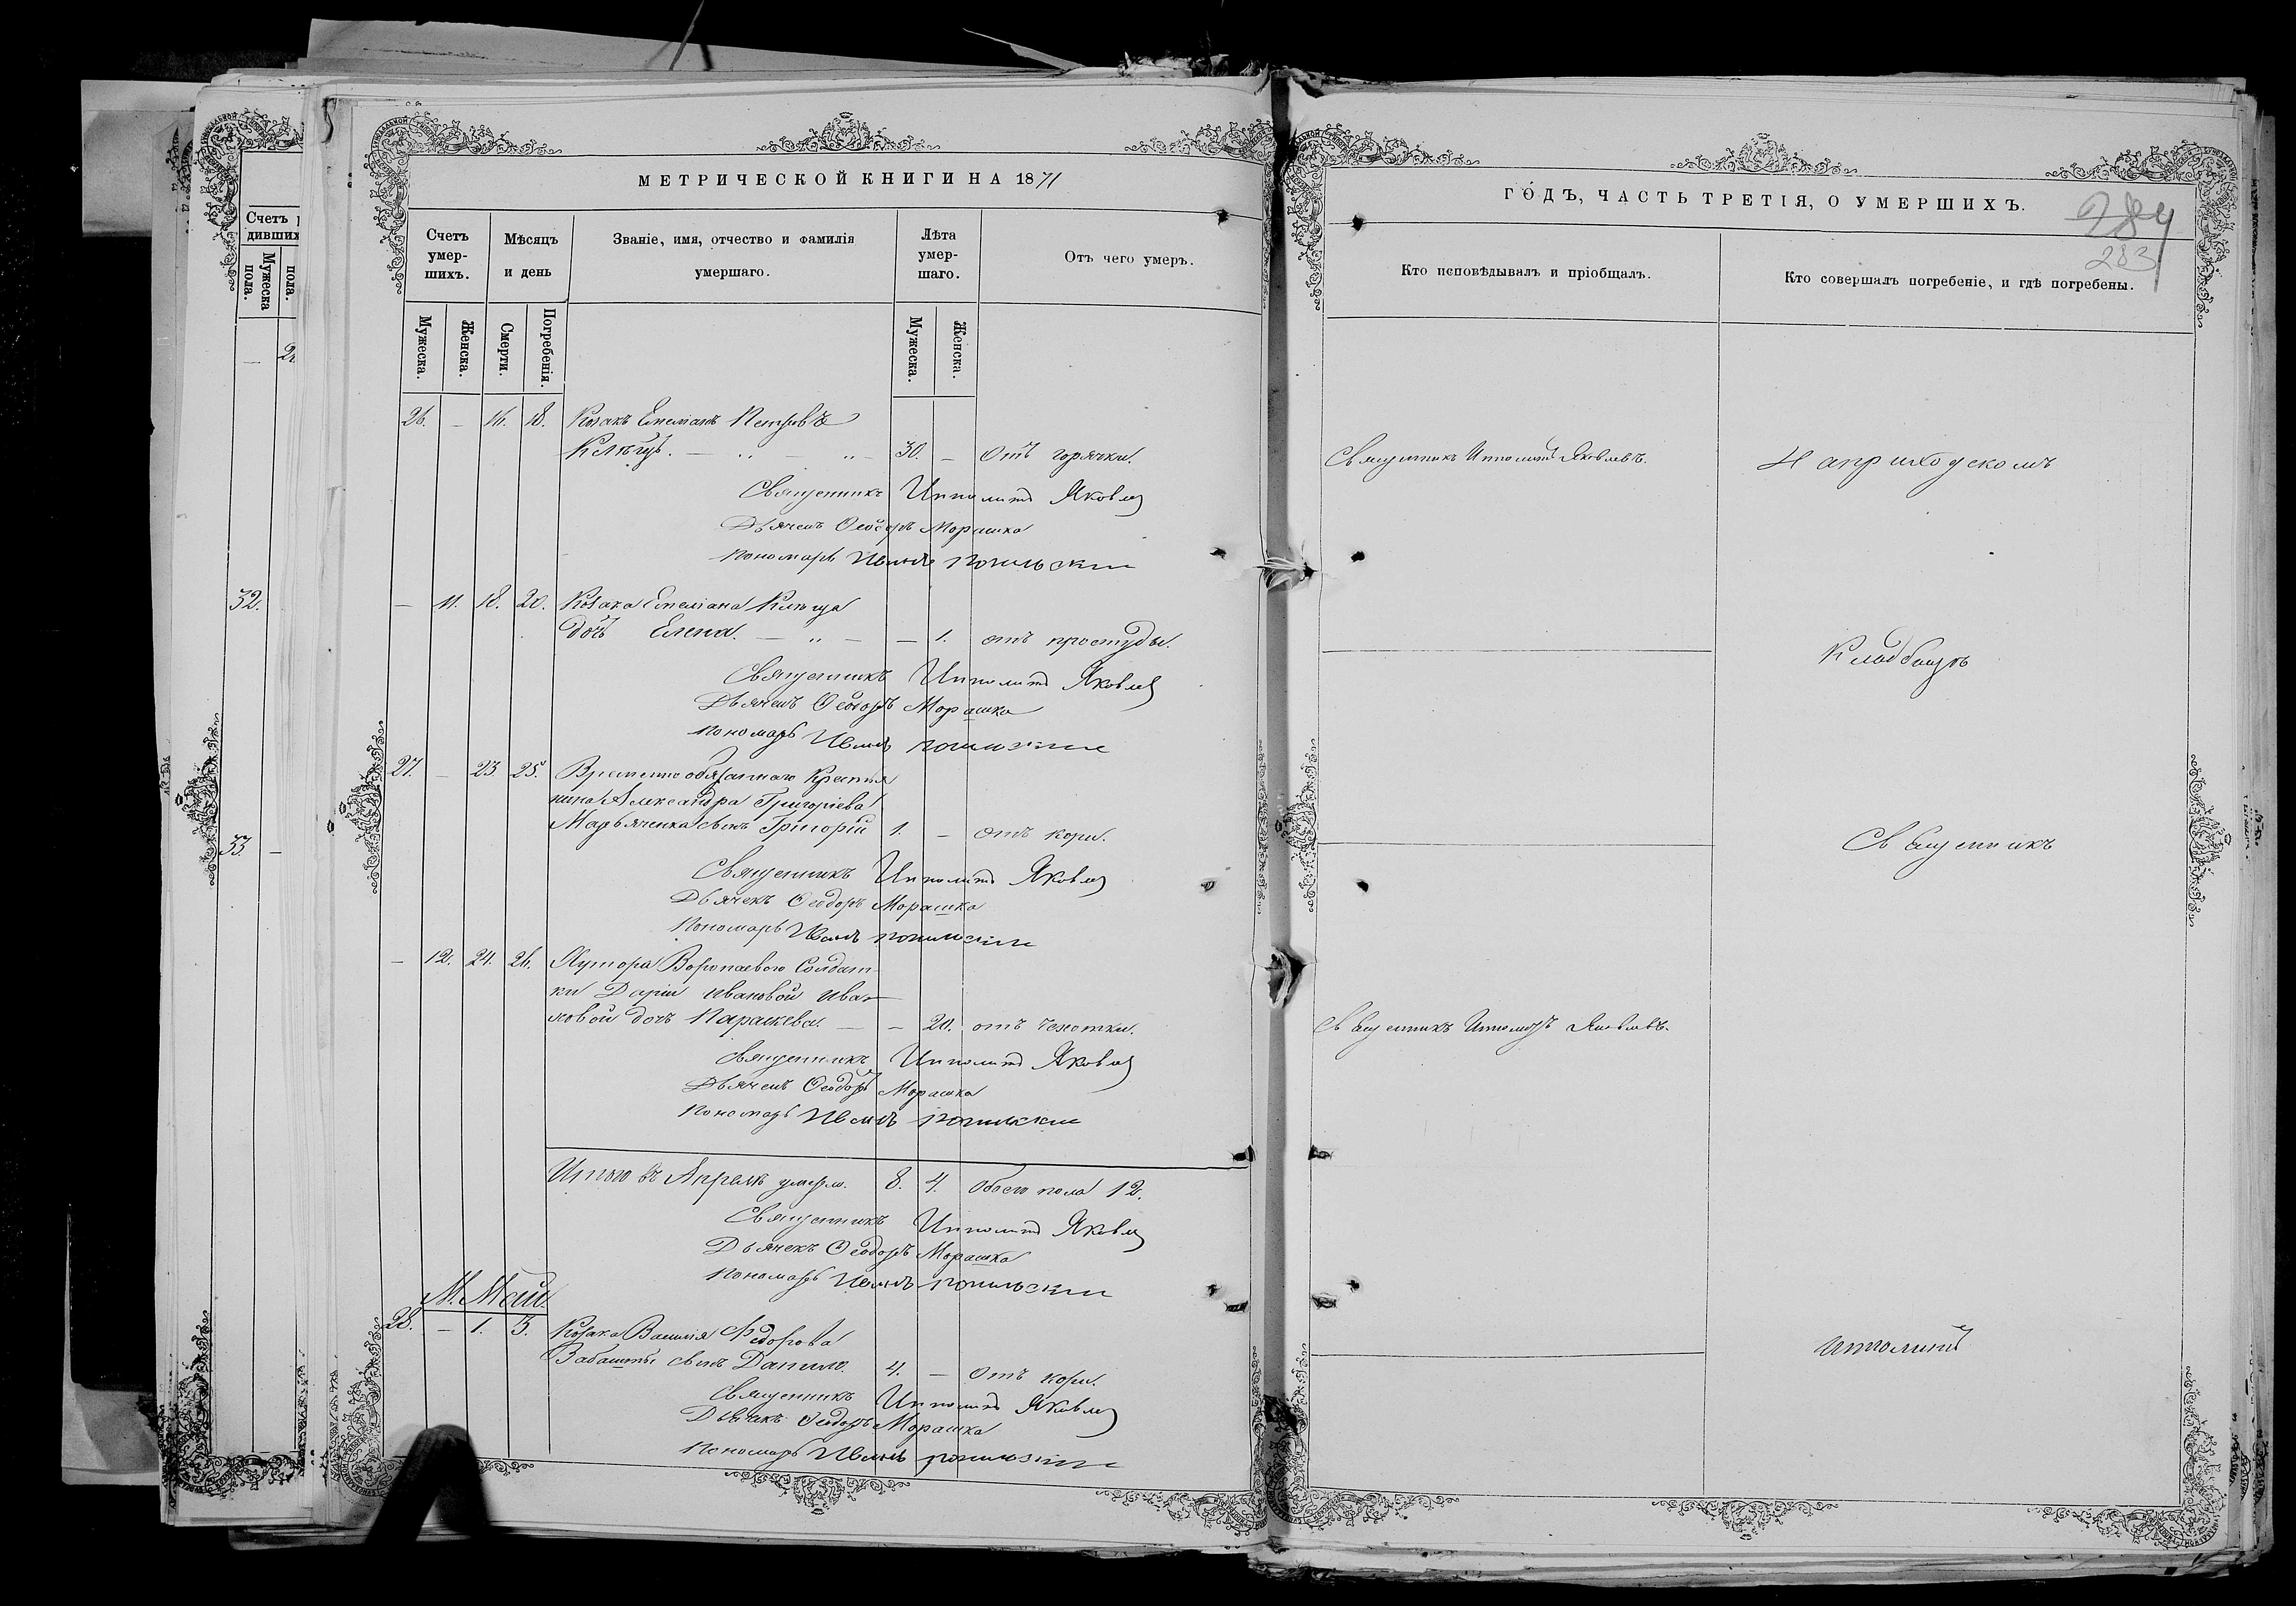 МЕТРИЧЕСКОЙ КНИГИ НА 1871
ГОДЪ, ЧАСТЬ ТРЕТІЯ, О УМЕРШИХЪ.
284
283
Счетъ
дивших
Мужеска пола.
пола.
32.
33.
Счетъ умер-шихъ.
Мѣсяцъ и день
Званіе, имя, отчество и фамилія умершаго.
Лѣта умер-шаго.
Отъ чего умеръ.
Кто исповѣдывалъ и пріобщалъ.
Кто совершалъ погребеніе, и гдѣ погребены.
Мужеска. Женска. Смерти. Погребенія. Мужеска. Женска.
26. – 16. 18. Козакъ Емеліанъ Петровъ
Клѣцъ. – 30. – Отъ горячки. Священникъ Ипполитъ Яковлевъ. На приходскомъ
Священникъ Ипполитъ Яковлев
Дьячекъ Ѳеодоръ Морашко
Пономарь Иванъ
– 11. 18. 20. Козака Емеліана Клѣща
дочь Елена. – – 1. отъ простуды.
Кладбищѣ
Священникъ Ипполитъ Яковлев
Дьячекъ Ѳеодоръ Морашко
Пономарь Иванъ
27. – 23. 25. Временно обязаннаго Крестья
нина Александра Григоріева
Марьяченка сынъ Григорій 1. – отъ кори.
Священникъ
Священникъ Ипполитъ Яковлев
Дьячекъ Ѳеодоръ Морашко
Пономарь Иванъ
– 12. 24. 26. Хутора Воропаевого Солдат
ки Даріи Ивановой Ива
новой дочь Параскева. – – 20. отъ чахотки. Священникъ Ипполитъ Яковлевъ.
Священникъ Ипполитъ Яковлев
Дьячекъ Ѳеодоръ Морашко
Пономарь Иванъ
Итого въ Апрелѣ умерло. 8. 4. Обоего пола 12.
Священникъ Ипполитъ Яковлев
Дьячекъ Ѳеодоръ Морашко
Пономарь Иванъ
М. Май.
28. – 1. 3. Козака Василія Федорова
сынъ Данило. 4. – Отъ кори.
Ипполитъ
Священникъ Ипполитъ Яковлев
Дьячекъ Ѳеодоръ Морашко
Пономарь Иванъ